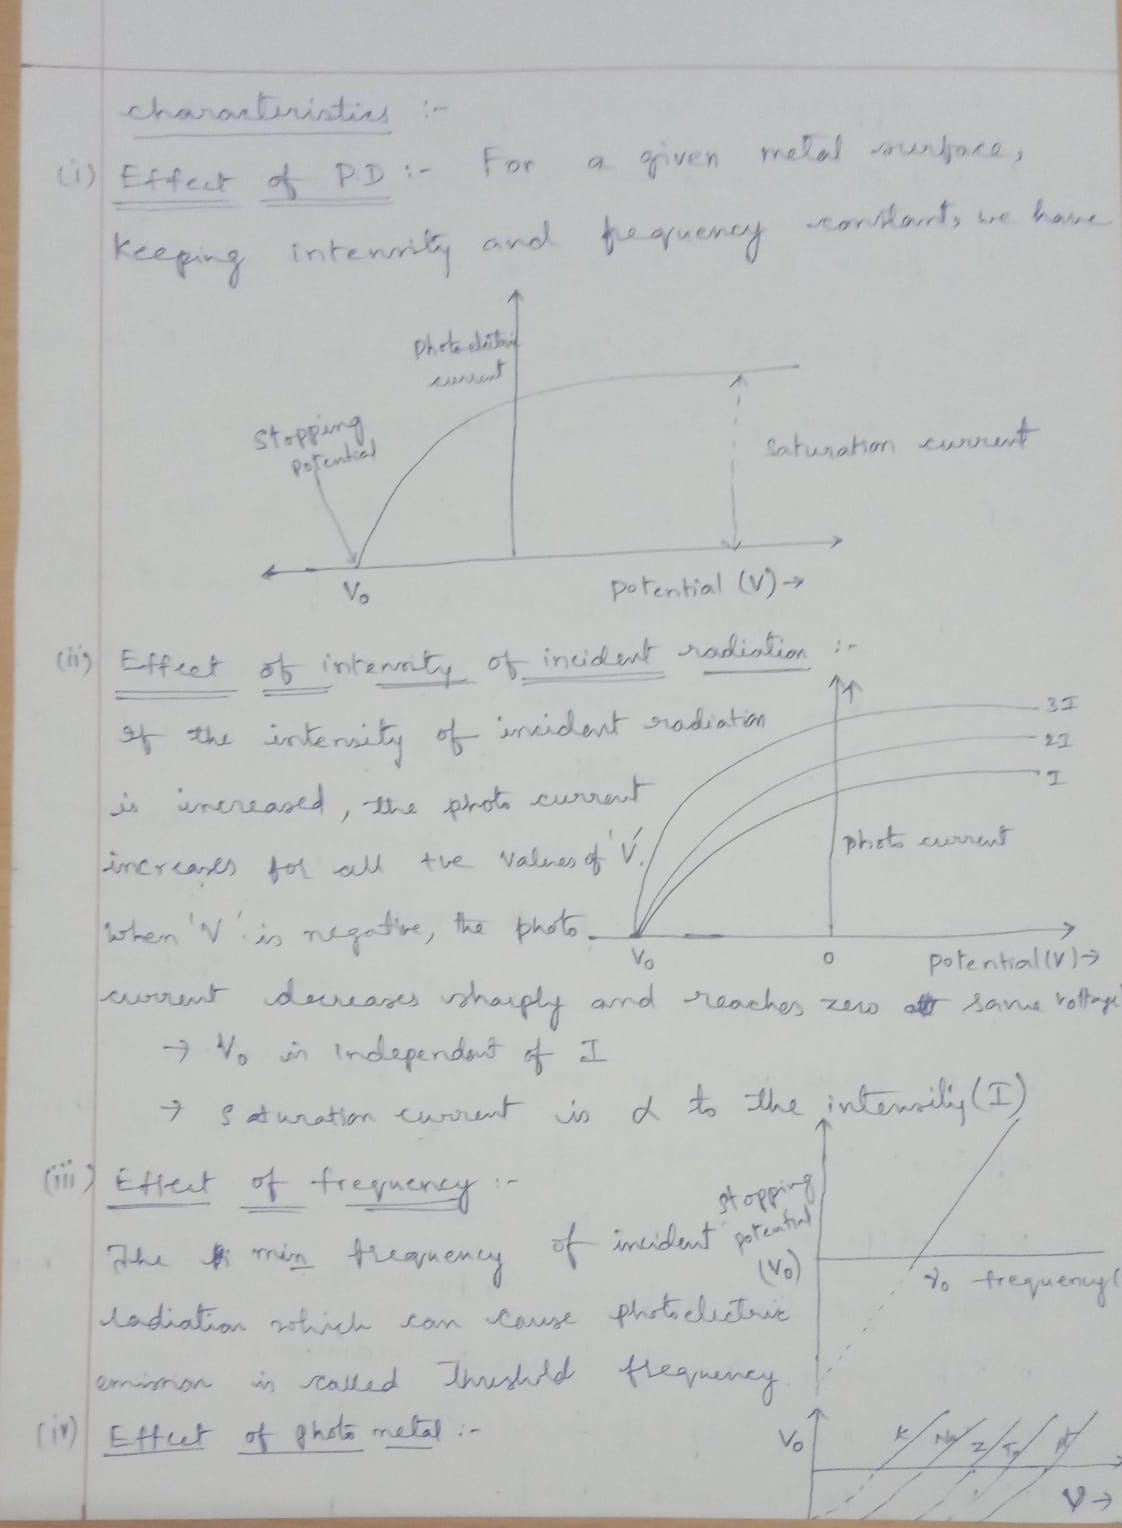 characteristics :-
(i) Effect of P.D :- For a given metal surface,
keeping intensity and frequency constants, we have
Photo electric
current
Stopping
potential
saturation current
V₀
potential (V) →
(ii) Effect of intensity of incident radiation :-
If the intensity of incident radiation
is increased, the photo current
increases for all +ve values of 'V'.
when 'V' is negative, the photo
current decreases sharply and reaches zero at same voltage
3I
2I
I
photo current
V₀
0
potential (V) →
→ V₀ is independent of I
→ saturation current is α to the intensity (I)
(iii) Effect of frequency :-
The min frequency of incident
radiation which can cause photoelectric
emission is called Threshold frequency
stopping
potential
(V₀)
γ₀ frequency (
(iv) Effect of photo metal :-
V₀
K Na Z
ν →